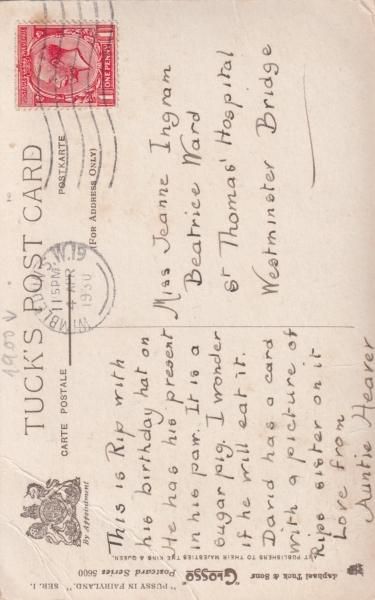 TUCK'S POST CARD
CARTE POSTALE
POSTKARTE
(For Address Only)
By Appointment
ONE PENNY
WIMBLEDON S.W.19
11 15 PM
4 APR
1930
1900 v
This is Rip with
his birthday hat on
He has his present
in his paw. It is a
sugar pig. I wonder
if he will eat it.
David has a card
with a picture of
Rips sister on it
Love from
Auntie Heaver
Miss Jeanne Ingram
Beatrice Ward
St Thomas' Hospital
Westminster Bridge
Raphael Tuck & Sons'
"GLOSSO"
Postcard Series 5600
"PUSSY IN FAIRYLAND," SER. I.
ART PUBLISHERS TO THEIR MAJESTIES THE KING & QUEEN.